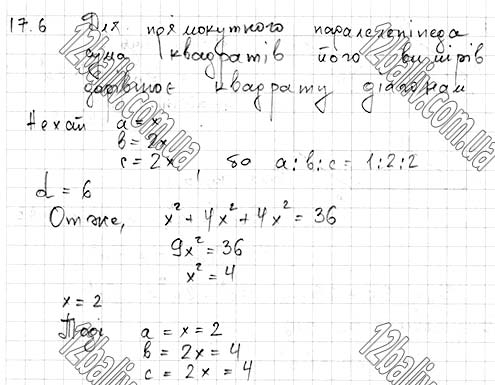 17.6 Для прямокутного паралелепіпеда
сума квадратів його вимірів
дорівнює квадрату діагоналі
Нехай a = x
b = 2x
c = 2x, бо a:b:c = 1:2:2
d = 6
Отже, x² + 4x² + 4x² = 36
9x² = 36
x² = 4
x = 2
Тоді a = x = 2
b = 2x = 4
c = 2x = 4
12baliv.com.ua
12baliv.com.ua
12baliv.com.ua
12baliv
12baliv